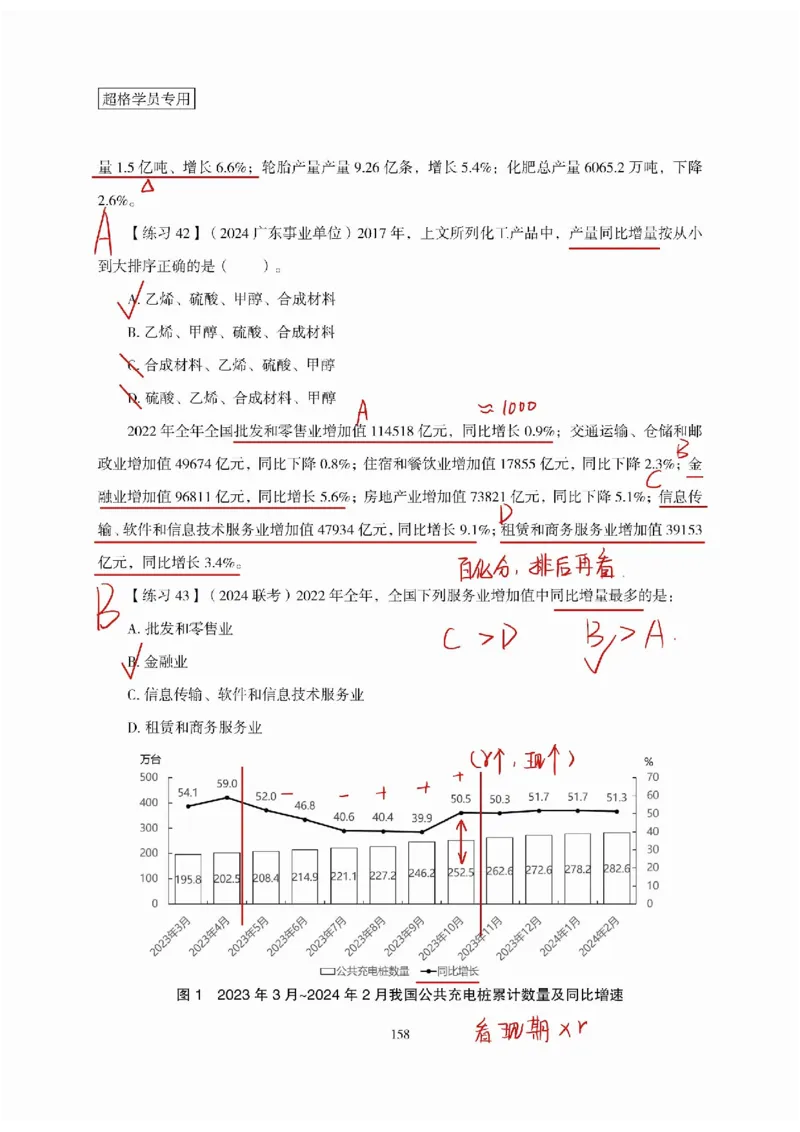 超格学员专用
量 1.5 亿吨、增长 6.6%；轮胎产量产量 9.26 亿条，增长 5.4%；化肥总产量 6065.2 万吨，下降
2.6%。
A
【练习 42】（2024 广东事业单位）2017 年，上文所列化工产品中，产量同比增量按从小
到大排序正确的是（　　）。
A. 乙烯、硫酸、甲醇、合成材料
B. 乙烯、甲醇、硫酸、合成材料
C. 合成材料、乙烯、硫酸、甲醇
D. 硫酸、乙烯、合成材料、甲醇
A ≈1000
2022 年全年全国批发和零售业增加值 114518 亿元，同比增长 0.9%；交通运输、仓储和邮
B
政业增加值 49674 亿元，同比下降 0.8%；住宿和餐饮业增加值 17855 亿元，同比下降 2.3%；金
C
融业增加值 96811 亿元，同比增长 5.6%；房地产业增加值 73821 亿元，同比下降 5.1%；信息传
D
输、软件和信息技术服务业增加值 47934 亿元，同比增长 9.1%；租赁和商务服务业增加值 39153
亿元，同比增长 3.4%。
百化分，排后再看.
B
【练习 43】（2024 联考）2022 年全年，全国下列服务业增加值中同比增量最多的是：
A. 批发和零售业
C>D B>A.
B. 金融业
C. 信息传输、软件和信息技术服务业
D. 租赁和商务服务业
(r↑，现↑)
万台 %
500 400 300 200 100 0
70 60 50 40 30 20 10 0
− − + + +
54.1 59.0 52.0 46.8 40.6 40.4 39.9 50.5 50.3 51.7 51.7 51.3
195.8 202.5 208.4 214.9 221.1 227.2 246.2 252.5 262.6 272.6 278.2 282.6
2023年3月 2023年4月 2023年5月 2023年6月 2023年7月 2023年8月 2023年9月 2023年10月 2023年11月 2023年12月 2024年1月 2024年2月
公共充电桩数量 同比增长
图 1　2023 年 3 月~2024 年 2 月我国公共充电桩累计数量及同比增速
看现期×r
158